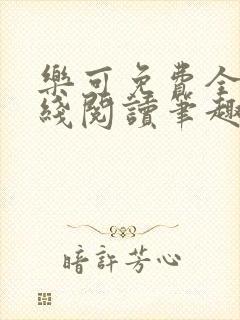 樂可免費全
綫閱讀筆趣
暗許芳心